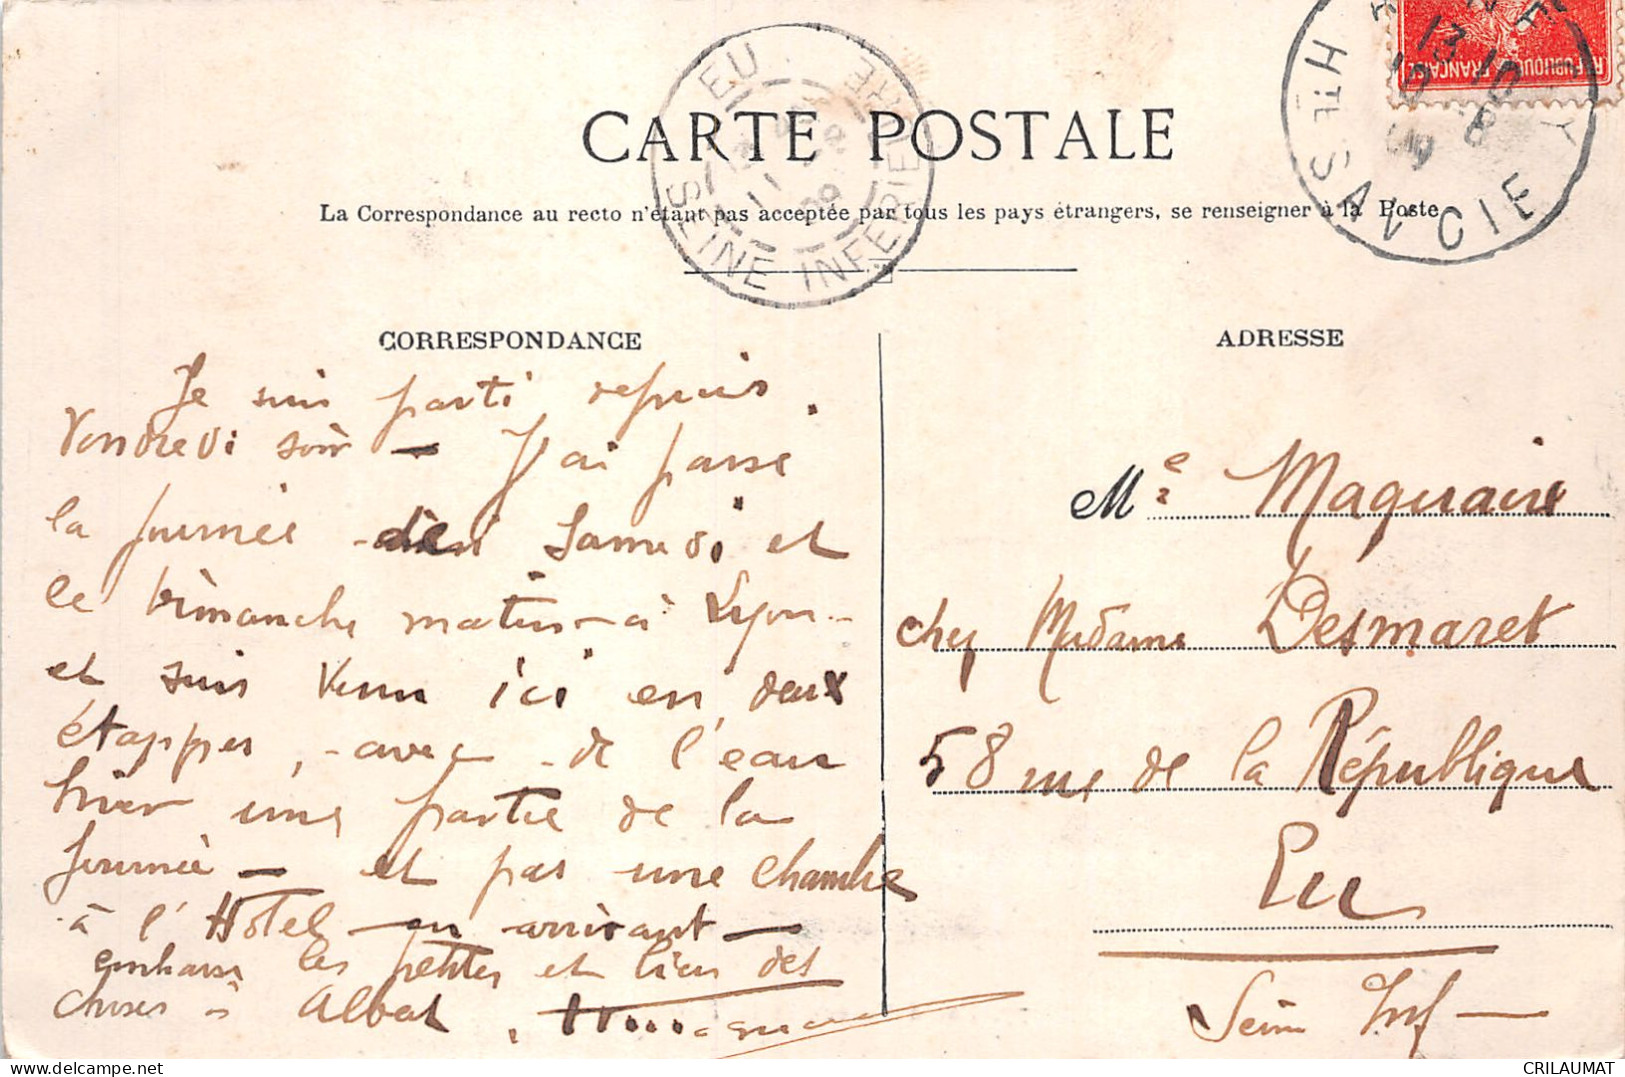 CARTE POSTALE
La Correspondance au recto n'étant pas acceptée par tous les pays étrangers, se renseigner à la Poste
EU
SEINE INFERIEURE
11
09
HTE SAVOIE
13 10
10 8
09
REPUBLIQUE FRANÇAISE
CORRESPONDANCE
Je suis parti depuis
Vendredi soir — J'ai passé
la journée de Samedi et
le Dimanche matin — à Lyon —
et suis venu ici en deux
étappes, avec de l'eau
hier une partie de la
journée — et pas une chambre
à l'Hotel en arrivant —
embrasse les petites et bien des
choses à Albert
ADRESSE
Me Maquaire
chez Madame Desmaret
58 rue de la République
Eu
Seine Inf —
CRILAUMAT